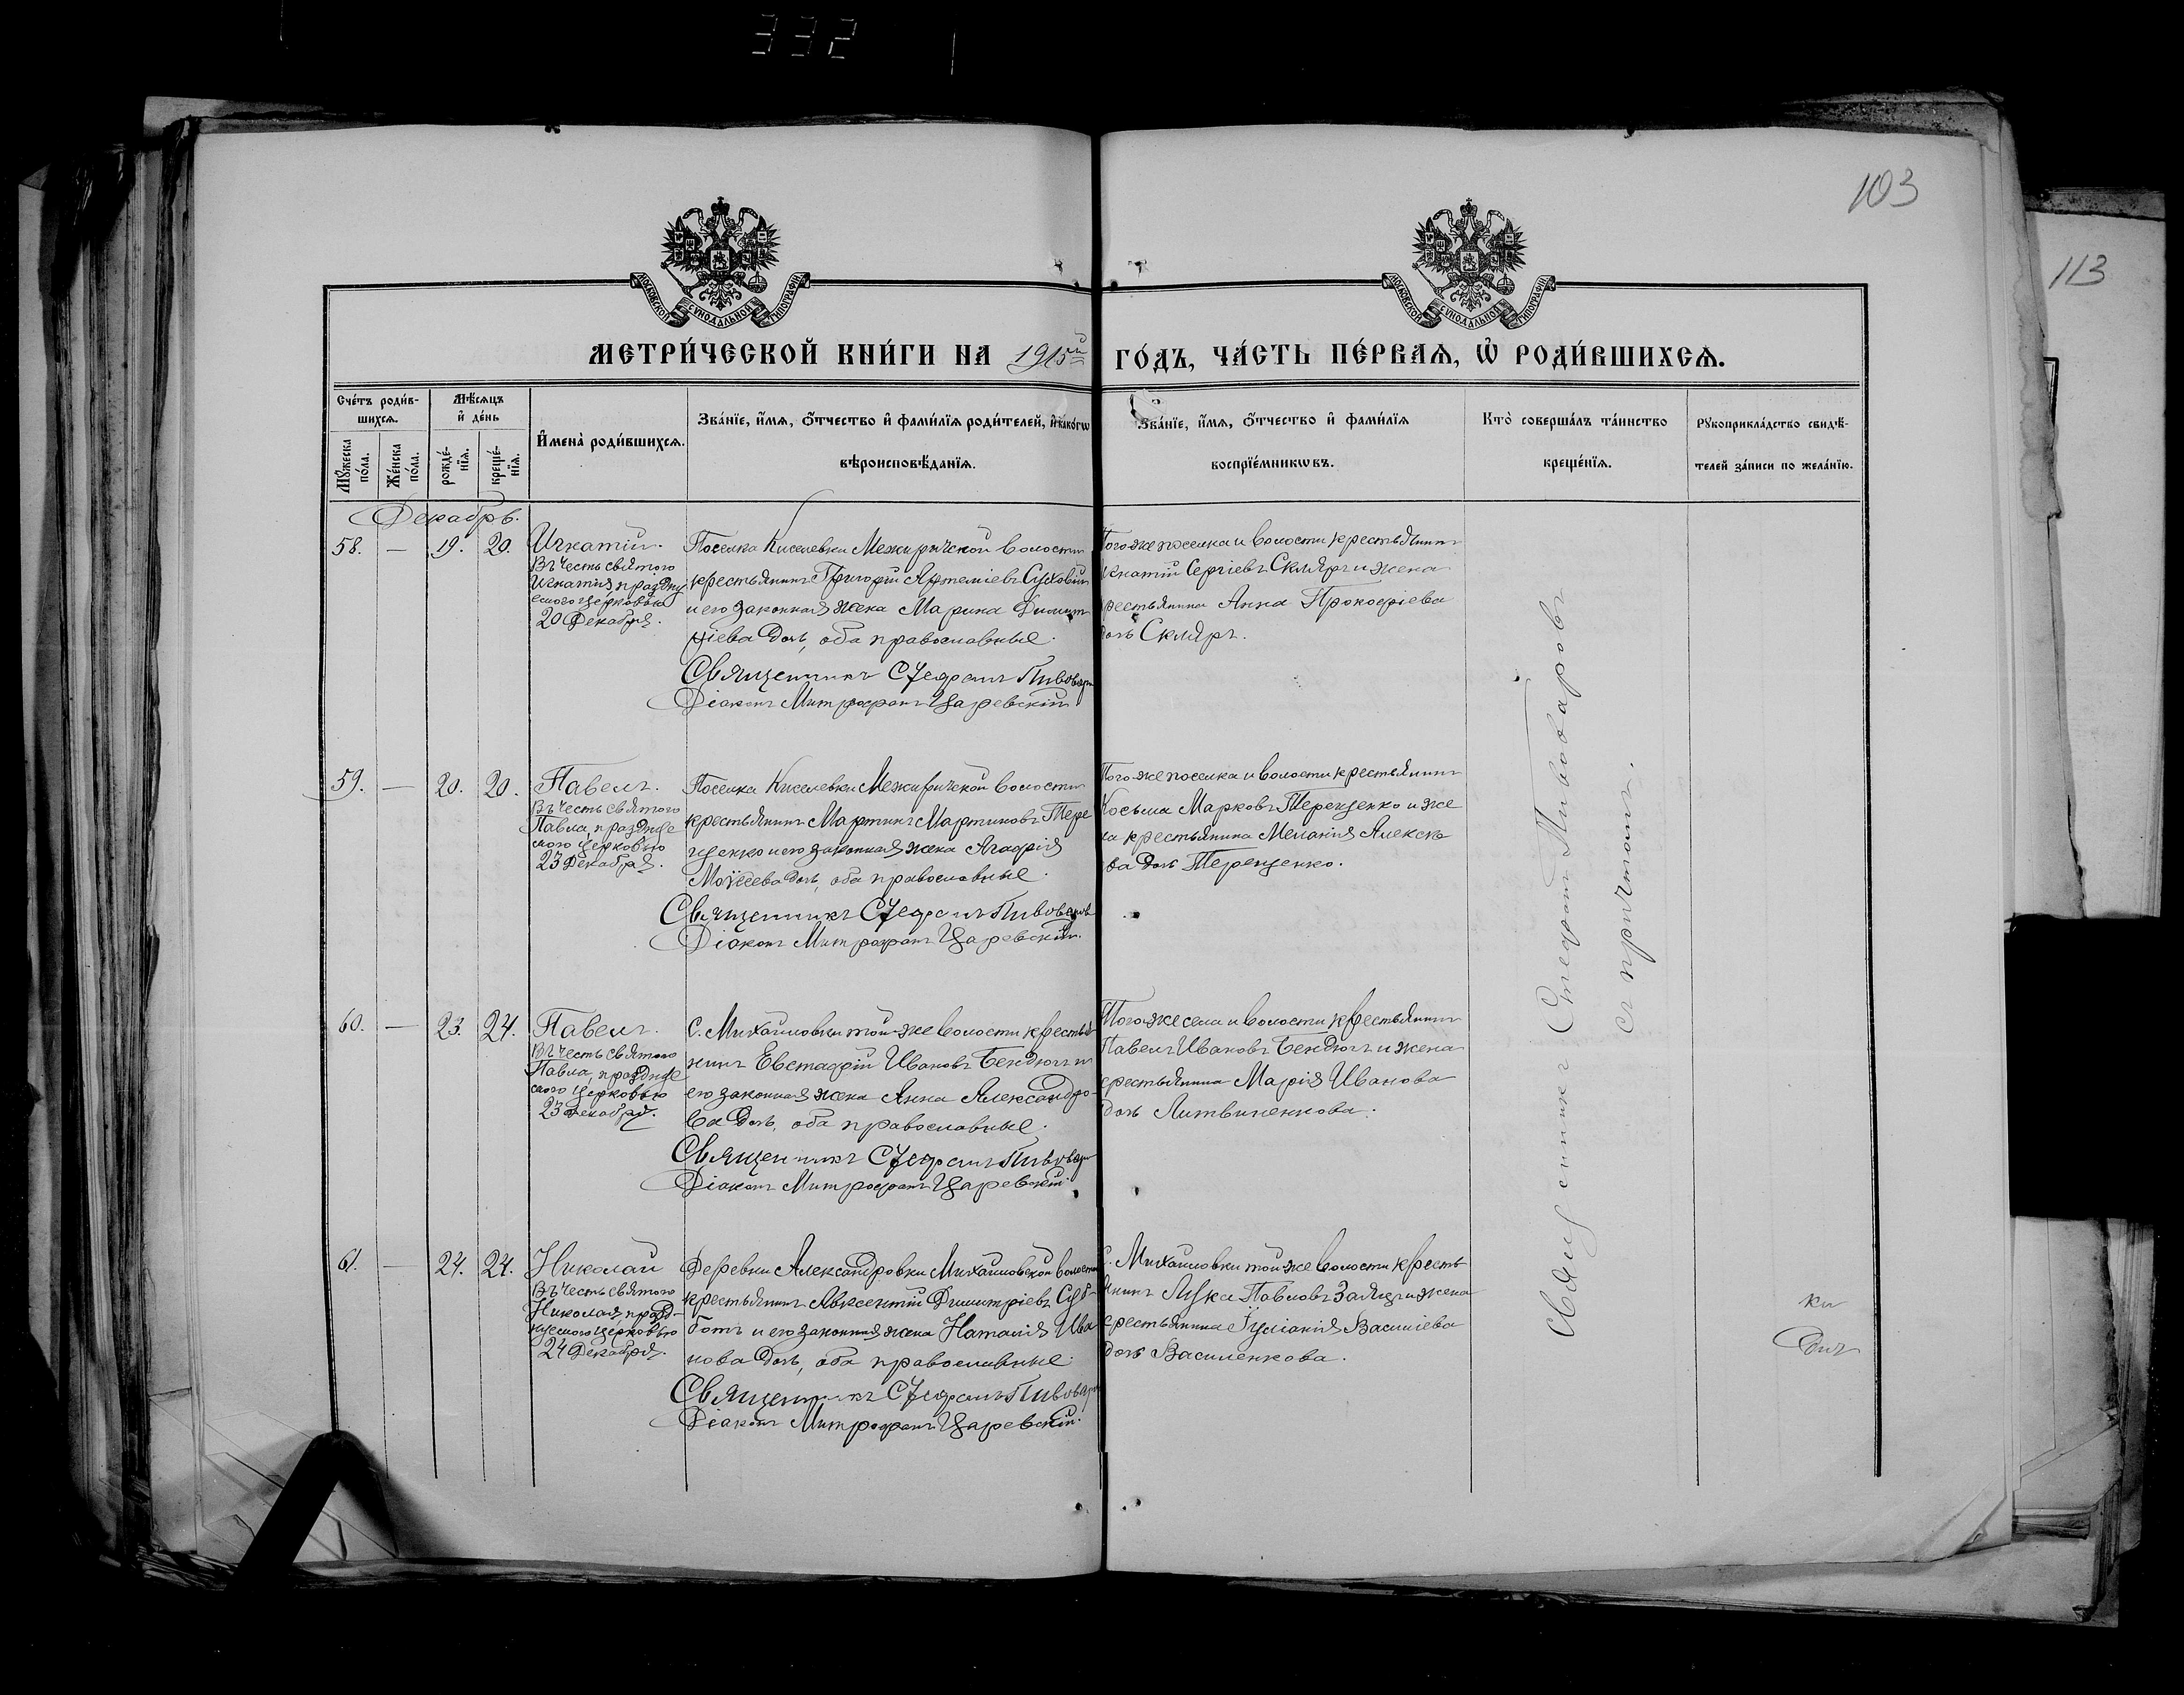 332
103
113
МОСКОВСКОЙ СѴНОДАЛЬНОЙ ТИПОГРАФІИ
МОСКОВСКОЙ СѴНОДАЛЬНОЙ ТИПОГРАФІИ
МЕТРИ́ЧЕСКОЙ КНИ́ГИ НА 1915й ГО́ДЪ, ЧА́СТЬ ПЕ́РВАѦ, Ѡ҆ РОДИ́ВШИХСѦ.
Сче́тъ роди́в-
шихсѧ.
Мꙋ́жеска по́ла.
Же́нска по́ла.
Мѣ́сѧцъ
и҆ де́нь
рожде́-
нїѧ.
креще́-
нїѧ.
И҆мена̀ роди́вшихсѧ.
Зва́нїе, и҆́мѧ, ѻ҆́тчество и҆ фами́лїѧ роди́телей, и҆ како́гѡ
вѣроисповѣ́данїѧ.
Зва́нїе, и҆́мѧ, ѻ҆́тчество и҆ фами́лїѧ
воспрїе́мникѡвъ.
Кто̀ соверша́лъ та́инство
креще́нїѧ.
Рꙋкоприкла́дство свидѣ́-
телей за́писи по жела́нїю.
Декабрь.
58. — 19. 20. Игнатій.
Въ честь святого
Игнатія, праздну
емого церковью
20 Декабря.
Поселка Киселевки Межиричской волости
крестьянинъ Григорій Артеміевъ Суховій
и его законная жена Марина Димит
ріева дочь, оба православные.
Священникъ Стефанъ Пивовар
Діаконъ Митрофанъ Царевскій
Того же поселка и волости крестьянинъ
Игнатій Сергіевъ Скляръ и жена
крестьянина Анна Прокофіева
дочь Скляръ.
59. — 20. 20. Павелъ.
Въ честь святого
Павла, празднуе
мого церковью
23 Декабря.
Поселка Киселевки Межиричской волости
крестьянинъ Мартинъ Мартиновъ Тере
щенко и его законная жена Агафія
Моѵсеева дочь, оба православные.
Священникъ Стефанъ Пивоваров
Діаконъ Митрофанъ Царевскій.
Того же поселка и волости крестьянинъ
Косьма Марковъ Терещенко и же
на крестьянина Меланія Алексѣе
ва дочь Терещенко.
60. — 23. 24. Павелъ.
Въ честь святого
Павла, празднуе
мого церковью
23 Декабря.
С. Михайловки той-же волости крестья
нинъ Евстафій Ивановъ Бендюгъ и
его законная жена Анна Александро-
ва дочь, оба православные.
Священникъ Стефанъ Пивовар
Діаконъ Митрофанъ Царевскій.
Того же села и волости крестьянинъ
Павелъ Ивановъ Бендюгъ и жена
крестьянина Марія Иванова
дочь Литвиненкова.
61. — 24. 24. Николай
Въ честь святого
Николая, празд-
нуемого церковью
24 Декабря.
Деревни Александровки Михайловской волости
крестьянинъ Авксентій Димитріевъ Суб-
ботъ и его законная жена Наталія Ива
нова дочь, оба православные.
Священникъ Стефанъ Пивовар
Діаконъ Митрофанъ Царевскій.
С. Михайловки той же волости кресть
янинъ Лука Павловъ Заяцъ и жена
крестьянина Іуліанія Васильева
дочь Василенкова.
Священникъ Стефанъ Пивоваровъ
съ причтомъ.